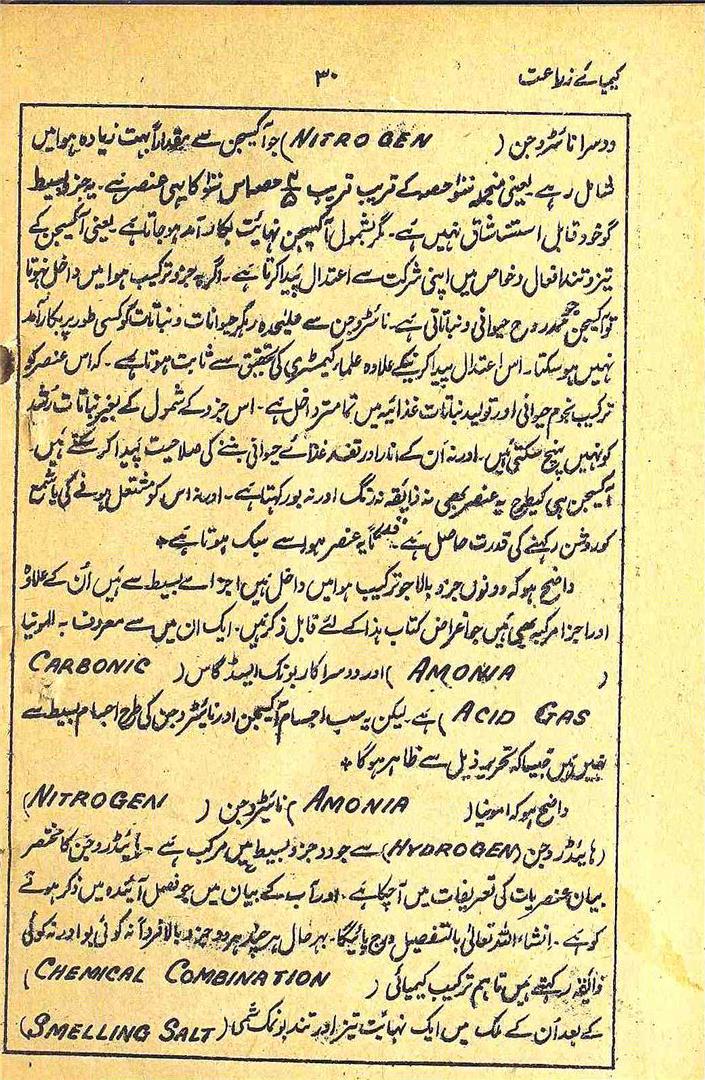 کیمیائے زراعت ۳۰
دوسرا نائٹروجن (NITROGEN) جو آکسیجن سے مقداراً بہت زیادہ ہوا میں
شامل رہے۔ یعنی منجملہ سو حصہ کے قریب قریب ⅘ حصہ اس سو کا یہی عنصر ہے۔ یہ جزو بسیط
گو خود قابل استنشاق نہیں ہے۔ مگر بشمول آکسیجن نہایت بکار آمد ہو جاتا ہے۔ یعنی آکسیجن کے
تیز و تند افعال و خواص میں اپنی شرکت سے اعتدال پیدا کرتا ہے۔ اگر یہ جزو ترکیب ہوا میں داخل نہوتا
تو آکسیجن روح حیوانی و نباتاتی ہے۔ نائٹروجن سے علیحدہ رہکر حیوانات و نباتات کو کسی طور پر بکار آمد
نہیں ہو سکتا۔ اس اعتدال پیدا کرنیکے علاوہ علمار کیمسٹری کی تحقیق سے ثابت ہوتا ہے۔ کہ اس عنصر کو
ترکیب لحوم حیوانی اور تولید نباتات غذائیہ میں تمامتر دخل ہے۔ اس جزو کے شمول کے بغیر نباتات رشد
کو نہیں پہنچ سکتی ہیں۔ اور نہ اُن کے اثمار اور تخم غذائے حیوانی بننے کی صلاحیت پیدا کر سکتے ہیں۔
آکسیجن ہی کیطرح یہ عنصر بھی نہ ذائقہ نہ رنگ اور نہ بو رکہتا ہے۔ اور نہ اس کو مشتعل ہونے کی یا شمع
کو روشن رکہنے کی قدرت حاصل ہے۔ یہ عنصر ہوا سے سبک ہوتا ہے *
واضح ہو کہ دونوں جزو بالا جو ترکیب ہوا میں داخل ہیں اجزائے بسیط سے ہیں اُن کے علاوہ
اور اجزا مرکبہ بھی ہیں جو اغراض کتاب ہذا کے لئے قابل ذکر ہیں۔ ایک ان میں سے معروف بہ امونیا
(AMONIA) اور دوسرا کاربونک ایسڈ گاس (CARBONIC
ACID GAS) ہے۔ لیکن یہ سب اجسام آکسیجن اور نائیٹروجن کی طرح اجسام بسیط سے
نہیں ہیں جیسا کہ تحریر ذیل سے ظاہر ہوگا *
واضح ہو کہ امونیا (AMONIA) نائیٹروجن (NITROGEN)
(ہائیڈروجن (HYDROGEN) سے جو دو جزو بسیط ہیں مرکب ہے۔ ہائیڈروجن کا مختصر
بیان عنصریات کی تعریفات میں آچکا ہے۔ اور آب کے بیان میں جو فصل آئیندہ میں ذکر ہونے
کو ہے۔ انشاء اللہ تعالیٰ بالتفصیل درج پائیگا۔ بہرحال ہر چند ہر دو جزو بالا فرداً نہ کوئی بو اور نہ کوئی
ذائقہ رکہتے ہیں تاہم ترکیب کیمیائی (CHEMICAL COMBINATION)
کے بعد اُن کے ملک میں ایک نہایت تیز اور تند بو نمک شمی (SMELLING SALT)